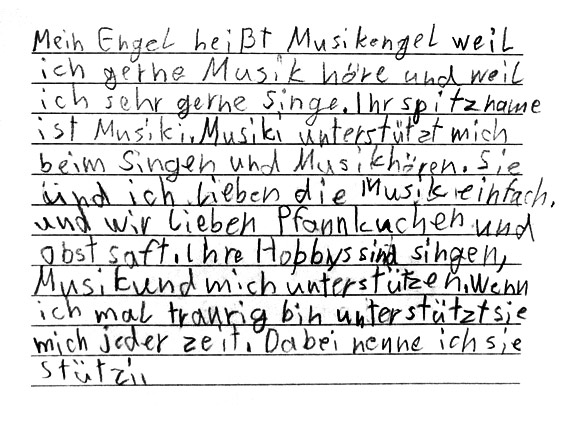 Mein Engel heißt Musikengel weil
ich gerne Musik höre und weil
ich sehr gerne singe. Ihr spitzname
ist Musiki. Musiki unterstützt mich
beim Singen und Musikhören. Sie
ünd ich lieben die Musik einfach,
und wir lieben Pfannkuchen und
obst saft. Ihre Hobbys sind singen,
Musik und mich unterstützen. Wenn
ich mal traurig bin unterstützt sie
mich jeder zeit. Dabei nenne ich sie
stützi,,